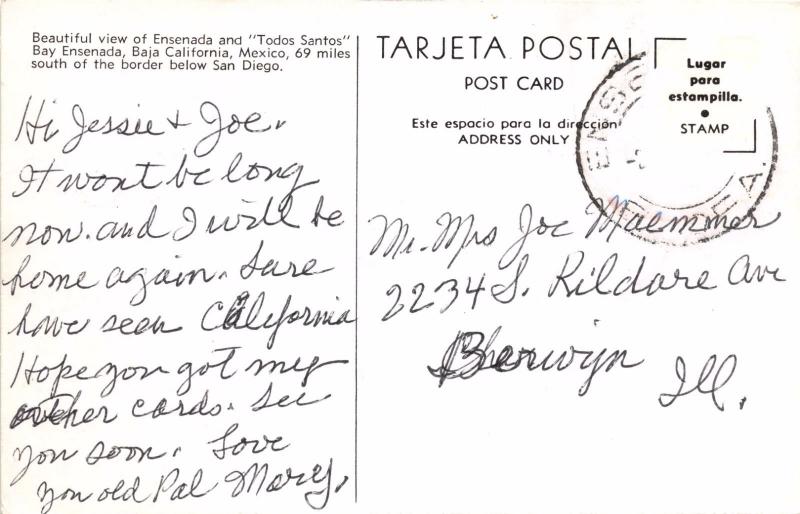 Beautiful view of Ensenada and "Todos Santos"
Bay Ensenada, Baja California, Mexico, 69 miles
south of the border below San Diego.
Hi Jessie & Joe.
It wont be long
now. and I will be
home again. Sure
have seen California
Hope you got my
other cards. See
you soon. Love
you old Pal Mary.
TARJETA POSTAL
POST CARD
Este espacio para la dirección
ADDRESS ONLY
Lugar
para
estampilla.
•
STAMP
Mr. Mrs Joe Maemmer
2234 S. Kildare Ave
Berwyn
Ill.